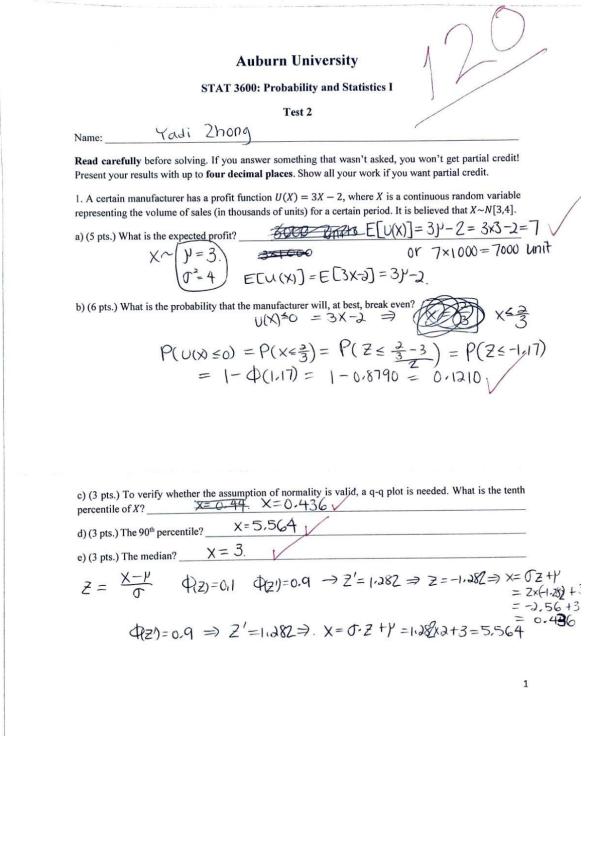 120
Auburn University
STAT 3600: Probability and Statistics I
Test 2
Name: Yadi Zhong
Read carefully before solving. If you answer something that wasn't asked, you won't get partial credit!
Present your results with up to four decimal places. Show all your work if you want partial credit.
1. A certain manufacturer has a profit function U(X) = 3X − 2, where X is a continuous random variable
representing the volume of sales (in thousands of units) for a certain period. It is believed that X~N[3,4].
a) (5 pts.) What is the expected profit? E[U(X)] = 3μ - 2 = 3x3-2 = 7
X~ μ = 3. 3x1000 or 7x1000 = 7000 unit
σ² = 4 E[U(X)] = E[3X-2] = 3μ-2.
b) (6 pts.) What is the probability that the manufacturer will, at best, break even?
U(X)≤0 = 3X-2 ⇒ X≤2/3
P(U(X)≤0) = P(X≤2/3) = P(Z ≤ (2/3 - 3)/2) = P(Z≤-1.17)
= 1-Φ(1.17) = 1-0.8790 = 0.1210
c) (3 pts.) To verify whether the assumption of normality is valid, a q-q plot is needed. What is the tenth
percentile of X? X=0.44 X=0.436
d) (3 pts.) The 90th percentile? X=5.564
e) (3 pts.) The median? X = 3.
Z = (X-μ)/σ Φ(Z)=0.1 Φ(Z')=0.9 → Z'=1.282 ⇒ Z=-1.282 ⇒ X=σZ+μ
= 2x(-1.282)+3
= -2.56+3
= 0.436
Φ(Z')=0.9 ⇒ Z'=1.282 ⇒. X=σ·Z+μ=1.282x2+3=5.564
1